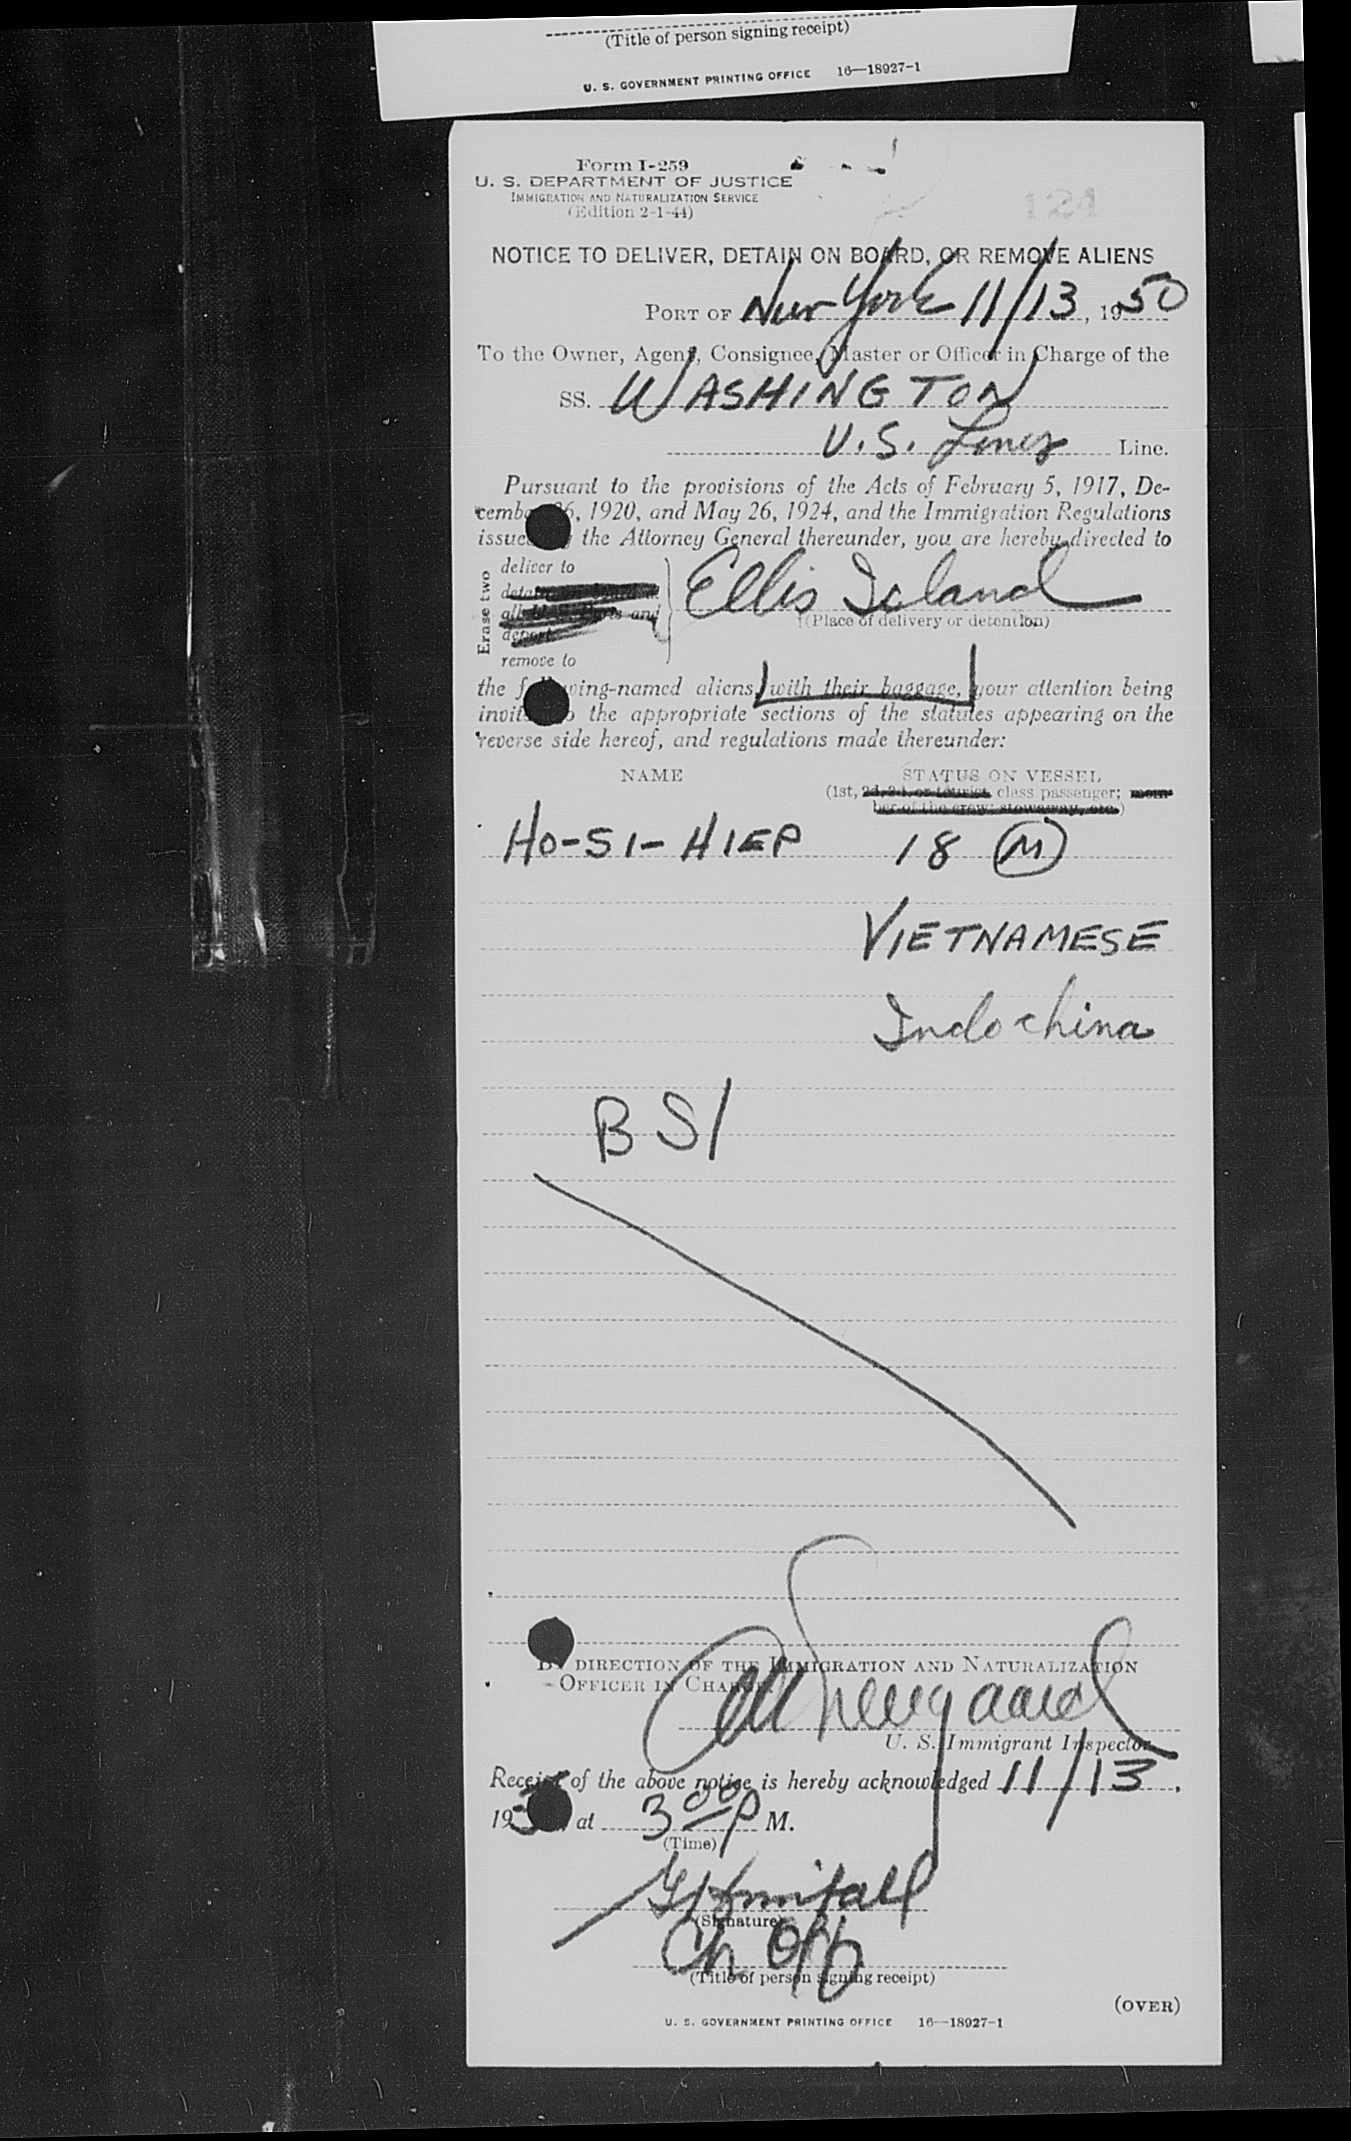 (Title of person signing receipt)
U. S. GOVERNMENT PRINTING OFFICE 16—18927-1
Form I-259
U. S. DEPARTMENT OF JUSTICE
IMMIGRATION AND NATURALIZATION SERVICE
(Edition 2-1-44)
124
NOTICE TO DELIVER, DETAIN ON BOARD, OR REMOVE ALIENS
PORT OF New York 11/13, 1950
To the Owner, Agent, Consignee, Master or Officer in Charge of the
SS. WASHINGTON
U.S. Lines Line.
Pursuant to the provisions of the Acts of February 5, 1917, De-
cember 26, 1920, and May 26, 1924, and the Immigration Regulations
issued by the Attorney General thereunder, you are hereby directed to
Erase two
deliver to
remove to
Ellis Island
(Place of delivery or detention)
the following-named aliens, with their baggage, your attention being
invited to the appropriate sections of the statutes appearing on the
reverse side hereof, and regulations made thereunder:
NAME STATUS ON VESSEL
(1st, 2d, 3d, or tourist class passenger; mem-
ber of the crew; stowaway, etc.)
HO-SI-HIEP 18 M
VIETNAMESE
Indochina
BSI
BY DIRECTION OF THE IMMIGRATION AND NATURALIZATION
OFFICER IN CHARGE
U. S. Immigrant Inspector
Receipt of the above notice is hereby acknowledged 11/13,
19 at 3 00 P M.
(Time)
(Signature)
Ch Off
(Title of person signing receipt)
(OVER)
U. S. GOVERNMENT PRINTING OFFICE 16—18927-1